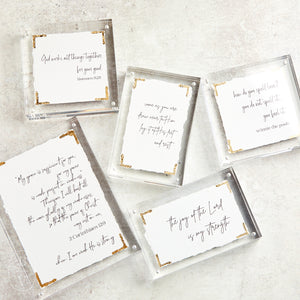 God works all things together
for your good
Romans 8:28
come as you are
how do you spell love?
you do not spell it
you feel it
winnie the pooh
"My grace is sufficient for you,
for my
is made perfect in
Therefore I will boast all
the more gladly of my
so that the power of Christ
may rest on me.
2 Corinthians 12:9
when I am weak He is strong
the joy of the Lord
is my strength